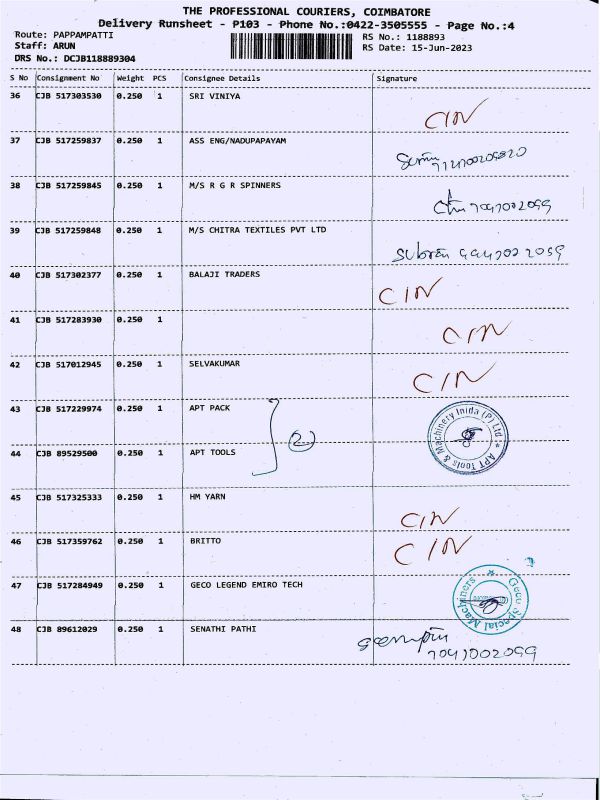 THE PROFESSIONAL COURIERS, COIMBATORE
Delivery Runsheet - P103 - Phone No.:0422-3505555 - Page No.:4
Route: PAPPAMPATTI
Staff: ARUN
DRS No.: DCJB118889304
RS No.: 1188893
RS Date: 15-Jun-2023
S No Consignment No Weight PCS Consignee Details Signature
36 CJB 517303530 0.250 1 SRI VINIYA CIN
37 CJB 517259837 0.250 1 ASS ENG/NADUPAPAYAM
38 CJB 517259845 0.250 1 M/S R G R SPINNERS
39 CJB 517259848 0.250 1 M/S CHITRA TEXTILES PVT LTD
40 CJB 517302377 0.250 1 BALAJI TRADERS CIN
41 CJB 517283930 0.250 1 CIN
42 CJB 517012945 0.250 1 SELVAKUMAR CIN
43 CJB 517229974 0.250 1 APT PACK
2
APT Tools & Machinery Inida (P) Ltd
44 CJB 89529500 0.250 1 APT TOOLS
45 CJB 517325333 0.250 1 HM YARN CIN
46 CJB 517359762 0.250 1 BRITTO CIN
47 CJB 517284949 0.250 1 GECO LEGEND EMIRO TECH
Geco Special Machiners
48 CJB 89612029 0.250 1 SENATHI PATHI